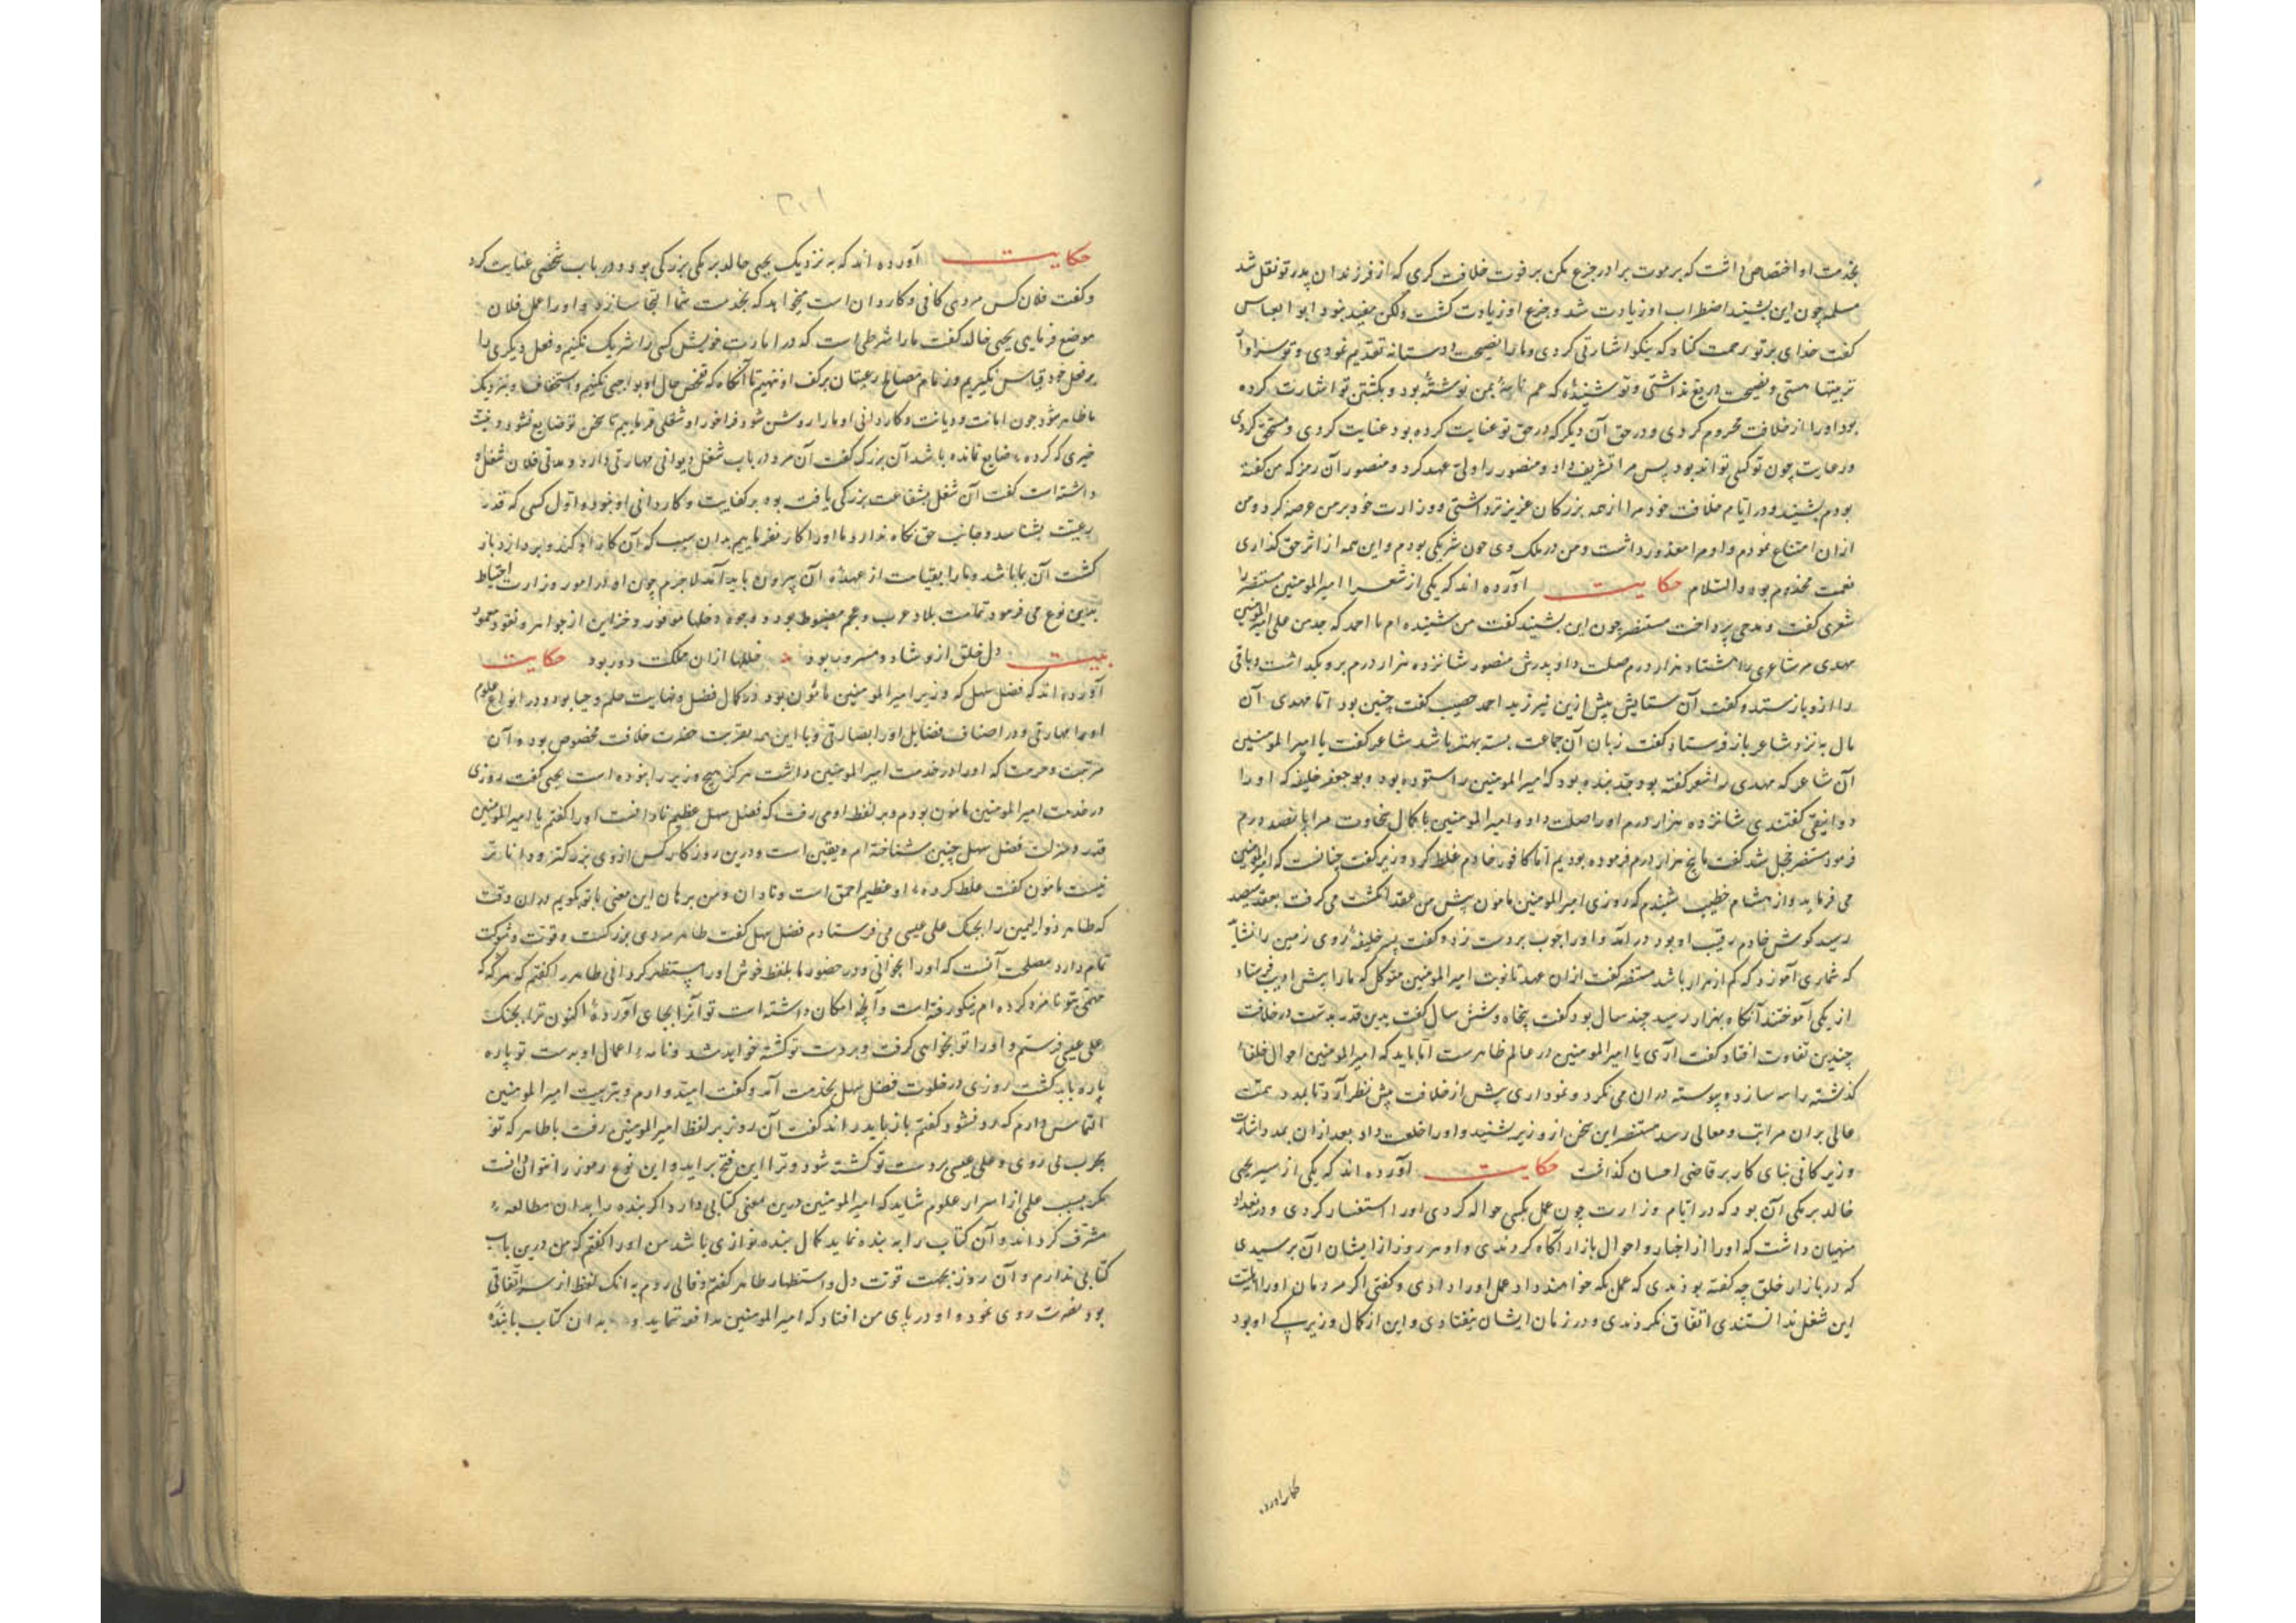 بخدمت او اختصاص داشت که بر موت برادر جزع مکن بر فوت خلافت گری که از فرزندان پدر تو نقل شد
مسلم چون این بشنید اضطراب او زیادت شد و جزع او زیادت گشت ولکن مفید نبود ابو العباس
گفت خدای بر تو رحمت کناد که نیکو اشارتی کردی و ما را نصیحت دوستانه تقدیم نمودی و تو سزاوار
تربیتها هستی و نصیحت دریغ نداشتی و تو شنیدهٔ که عم نامهٔ بمن نوشته بود و بکشتن تو اشارت کرده
بود او را از خلافت محروم کردی و در حق آن دیگر که در حق تو عنایت کرده بود عنایت کردی و مستحق کردی
ورعایت چون تو کی تواند بود پس مرا تشریف داد و منصور را ولی عهد کرد و منصور آن رمز که من گفته
بودم بشنید و در ایام خلافت خود مرا از همه بزرگان عزیزتر داشتی و وزارت خود بر من عرضه کرد و من
از آن امتناع نمودم و او مرا معذور داشت و من در ملک وی چون شریکی بودم و این همه از اثر حق گذاری
نعمت مخدوم بود والسلام حکایت آورده اند که یکی از شعرا امیرالمومنین مستنصر را
شعری گفت و مدحی پرداخت مستنصر چون این بشنید گفت من شنیده ام یا احمد که جد من علی امیرالمومنین
مهدی مر شاعری را هشتاد هزار درم صلت داد و پدرش منصور شانزده هزار درم برو بگذاشت و باقی
را از و باز ستد و گفت آن ستایش بیش ازین نیرزید احمد حصیب گفت چنین بود اما مهدی آن
مال به نزد شاعر باز فرستاد و گفت زبان آن جماعت بسته بهتر باشد شاعر گفت یا امیرالمومنین
آن شاعر که مهدی را شعر گفته بود جد بنده بود که امیرالمومنین را ستوده بود و بوجعفر خلیفه که او را
دوانیقی گفتندی شانزده هزار درم او را صلت داد و امیرالمومنین با کمال سخاوت مرا پانصد درم
فرمود مستنصر خجل شد گفت ما پنج هزار درم فرموده بودیم اما کافور خادم غلط کرد وزیر گفت چنانست که امیرالمومنین
می فرماید و از هشام خطیب شنیدم که روزی امیرالمومنین مامون پیش من عقد انگشت می گرفت بعقد سیصد
رسید کوش خادم رقیب او بود در آمد و او را چوب بر دست زد و گفت پسر خلیفهٔ روی زمین را نشاید
که شماری آموزد که کم از هزار باشد مستنصر گفت از آن عهد تا نوبت امیرالمومنین متوکل که ما را پیش ادیب فرستاد
از یکی آموختند آنگاه بهزار رسید چند سال بود گفت پنجاه و شش سال گفت بدین قدر مدت در خلافت
چندین تفاوت افتاد گفت آری یا امیرالمومنین در عالم ظاهرست اما باید که امیرالمومنین احوال خلفاء
گذشته را سازد و پیوسته در آن می نگرد و نموداری پیش از خلافت پیش نظر آرد تا بلند همت
عالی بر آن مراتب و معالی رسد مستنصر این سخن از وزیر شنید و او را خلعت داد و بعد از آن بمدد اشارت
وزیر کافی بنای کار بر قاضی احسان گذاشت حکایت آورده اند که یکی از سیر یحیی
خالد برمکی آن بود که در ایام وزارت چون عمل بکسی حواله کردی او را استفسار کردی و در بغداد
منهیان داشت که او را از اخبار و احوال بازار آگاه کردندی و او هر روز از ایشان آن پرسیدی
که در بازار خلق چه گفته بودندی که عمل بکه خواهند داد عمل او را دادی و گفتی اگر مردمان او را اهلیت
این شغل ندانستندی اتفاق نکردندی و در زمان ایشان نیفتادی و این از کمال وزیری او بود
حکایت آورده اند که به نزدیک یحیی خالد برمکی بزرگی بود و در باب شخصی عنایت کرد
و گفت فلان کس مردی کافی و کاردان است میخواهد که بخدمت شما التجا سازد و او را عمل فلان
موضع فرمایی یحیی خالد گفت ما را شرطی است که در امارت خویش کسی را شریک نکنیم و فعل دیگری را
بر فعل خود قیاس نگیریم و زمام مصالح رعیتان بر کف او ننهیم تا آنگاه که تفحص حال او بواجبی نکنیم و استخفاف و بنزدیک
ما ظاهر شود چون امانت و دیانت و کاردانی او ما را روشن شود فراخور او شغلی فرماییم تا سخن تو ضایع نشود و نیت
خیری که کرده ضایع نمانده باشد آن بزرگ گفت آن مرد در باب شغل دیوانی مهارتی دارد و مدتی فلان شغل او
داشته است گفت آن شغل بشفاعت بزرگی یافت بود بر کفایت و کاردانی او نبود و اول کسی که قدر
رعیت بشناسد و جانب حق نگاه ندارد ما او را کار نفرماییم بدان سبب که آن کار او کند و بر دارد باز
گشت آن بما باشد و ما را بقیامت از عهدهٔ آن بیرون باید آمد لاجرم چون او در امور وزارت احتیاط
بدین نوع می فرمود تمامت بلاد عرب و عجم مضبوط بود و وجوه دخلها موفور و خزاین از جواهر و نقود معمور
بیت دل خلق ازو شاد و مسرور بود خللها از آن مملکت دور بود حکایت
آورده اند که فضل سهل که وزیر امیرالمومنین مامون بود در کمال فضل و نهایت حلم و حیا بود و در انواع علوم
او را مهارتی و در اصناف فضایل او را بصارتی و با این همه بقربت حضرت خلافت مخصوص بود و آن
مرتبت و حرمت که او را در خدمت امیرالمومنین داشت هرگز هیچ وزیر را نبوده است یحیی گفت روزی
در خدمت امیرالمومنین مامون بودم و بر لفظ او می رفت که فضل سهل عظیم نادانست او را گفتم یا امیرالمومنین
قدر و منزلت فضل سهل چنین شناخته ام و یقین است و درین روزگار کس از وی بزرگتر و داناتر
نیست مامون گفت غلط کرده او عظیم احمق است و نادان و من برهان این معنی با تو بگویم در آن وقت
که طاهر ذوالیمین را بجنگ علی عیسی می فرستادم فضل سهل گفت طاهر مردی بزرگست و قوت و شوکت
تمام دارد مصلحت آنست که او را بخوانی و در حضور ما بلفظ خوش او را مستظهر گردانی طاهر را گفتم که هرگه که
مهمی بتو نامزد کرده ام نیکو رفته است و آنچه امکان داشته است تو آنرا بجای آوردهٔ اکنون ترا بجنگ
علی عیسی فرستم و او را تو بخواهی گرفت و بر دست تو کشته خواهد شد و نامه اعمال او بدست تو پاره
پاره باید گشت روزی در خلوت فضل سهل بخدمت آمد و گفت امید وارم و بتربیت امیرالمومنین
التماس دارم که رد نشود گفتم باز باید راند گفت آن روز بر لفظ امیرالمومنین رفت با طاهر که تو
بحرب می روی و علی عیسی بر دست تو کشته شود و ترا این فتح بر آید و این نوع رموز را نتوان دانست
مگر بسبب علمی از اسرار علوم شاید که امیرالمومنین درین معنی کتابی دارد اگر بنده را بدان مطالعه
مشرف گرداند و آن کتاب را به بنده نماید کمال بنده نوازی باشد من او را گفتم که من درین باب
کتابی ندارم و آن روز بجهت قوت دل و استظهار طاهر گفتم و فالی زدم به آنک لفظ از سر اتفاقی
بود نصرت روی نمود و او در پای من افتاد که امیرالمومنین مدافعه ننماید و به آن کتاب با بنده